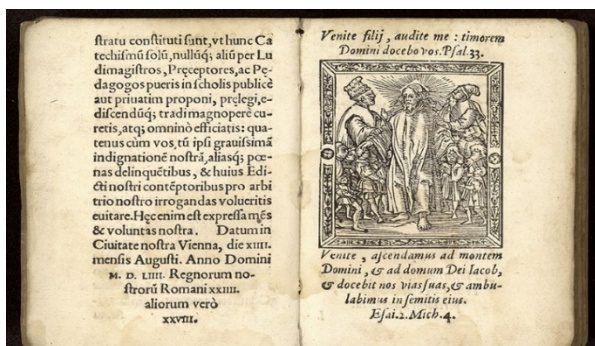 stratu constituti sunt, vt hunc Ca
techismũ solũ, nullũq; aliũ per Lu
dimagistros, Pręceptores, ac Pę-
dagogos pueris in scholis publicè
aut priuatim proponi, pręlegi, e-
discendũq; tradi magnopere cu-
retis, atq; omninò efficiatis: qua-
tenus cùm vos, tũ ipsi grauissimã
indignationẽ nostrã, aliasq; pœ-
nas delinquẽtibus, & huius Edi-
cti nostri contẽptoribus pro arbi
trio nostro irrogandas volueritis
euitare. Hęc enim est expressa mẽs
& voluntas nostra. Datum in
Ciuitate nostra Vienna, die XIIII.
mensis Augusti. Anno Domini
M. D. LIIII. Regnorum no-
strorũ Romani XXIIII.
aliorum verò
XXVIII.
Venite filij, audite me : timorem
Domini docebo vos. Psal. 33.
Venite, ascendamus ad montem
Domini, & ad domum Dei Iacob,
& docebit nos vias suas, & ambu-
labimus in semitis eius.
Esai. 2. Mich. 4.